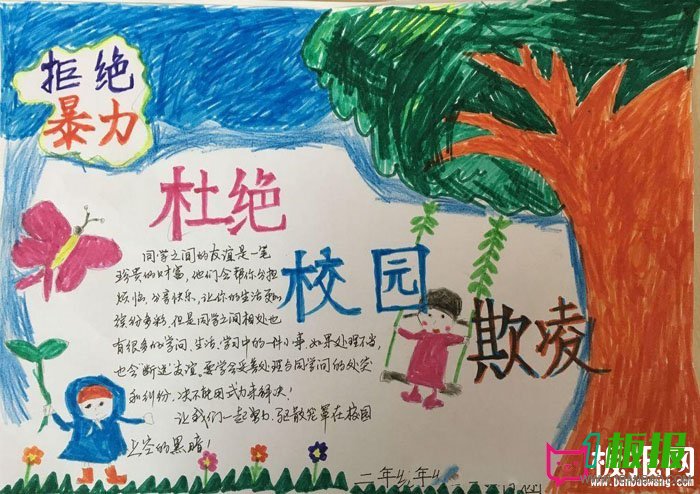 拒绝
暴力
杜绝
校园
欺凌
同学之间的友谊是一笔
珍贵的财富，他们会帮你分担
烦恼，分享快乐，让你的生活更加
缤纷多彩，但是同学之间相处也
有很多的学问，生活、学习中的一件小事如果处理不当，
也会断送友谊。要学会妥善处理与同学间的处突
和纠纷，决不能用武力来解决！
让我们一起努力，驱散笼罩在校园
上空的黑暗！
板报网
www.banbaowang.com